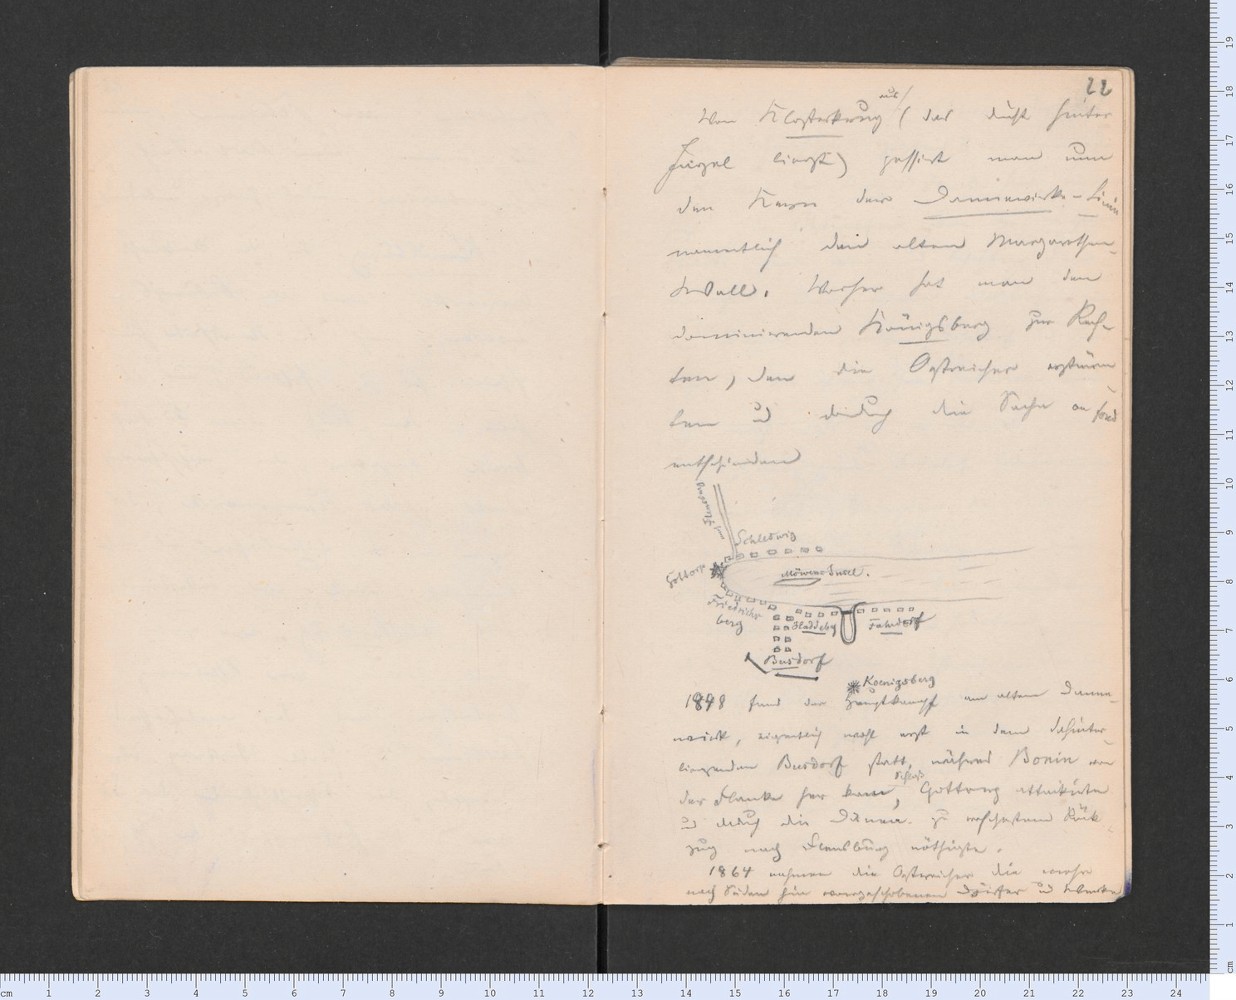 22
Vom Klosterkrug aus (das dicht hinter
Jagel liegt) passirt man nun
den Kern der Dannewirke-Linie
namentlich den alten Margarethen-
Wall. Vorher hat man den
dominirenden Königsberg zur Rech-
ten, den die Oestreicher erstürm-
ten und dadurch die Sache au fond
entschieden
nach Flensburg
Schleswig
Gottorp
Möwen-Insel.
Friedrichs-
berg
Haddeby
Fahrdorf
Busdorf
Koenigsberg
1848 fand der Hauptkampf am alten Danne-
wirk, eigentlich wohl erst in dem dahinter-
liegenden Busdorf statt, während Bonin von
der Flanke her kam, Schloß Gottorp attakirte
und dadurch die Dänen zu Rück-
zug nach Flensburg nöthigte.
1864 nahmen die Oestreicher die mehr
nach Süden hin vorgeschobenen Dörfer und Werke